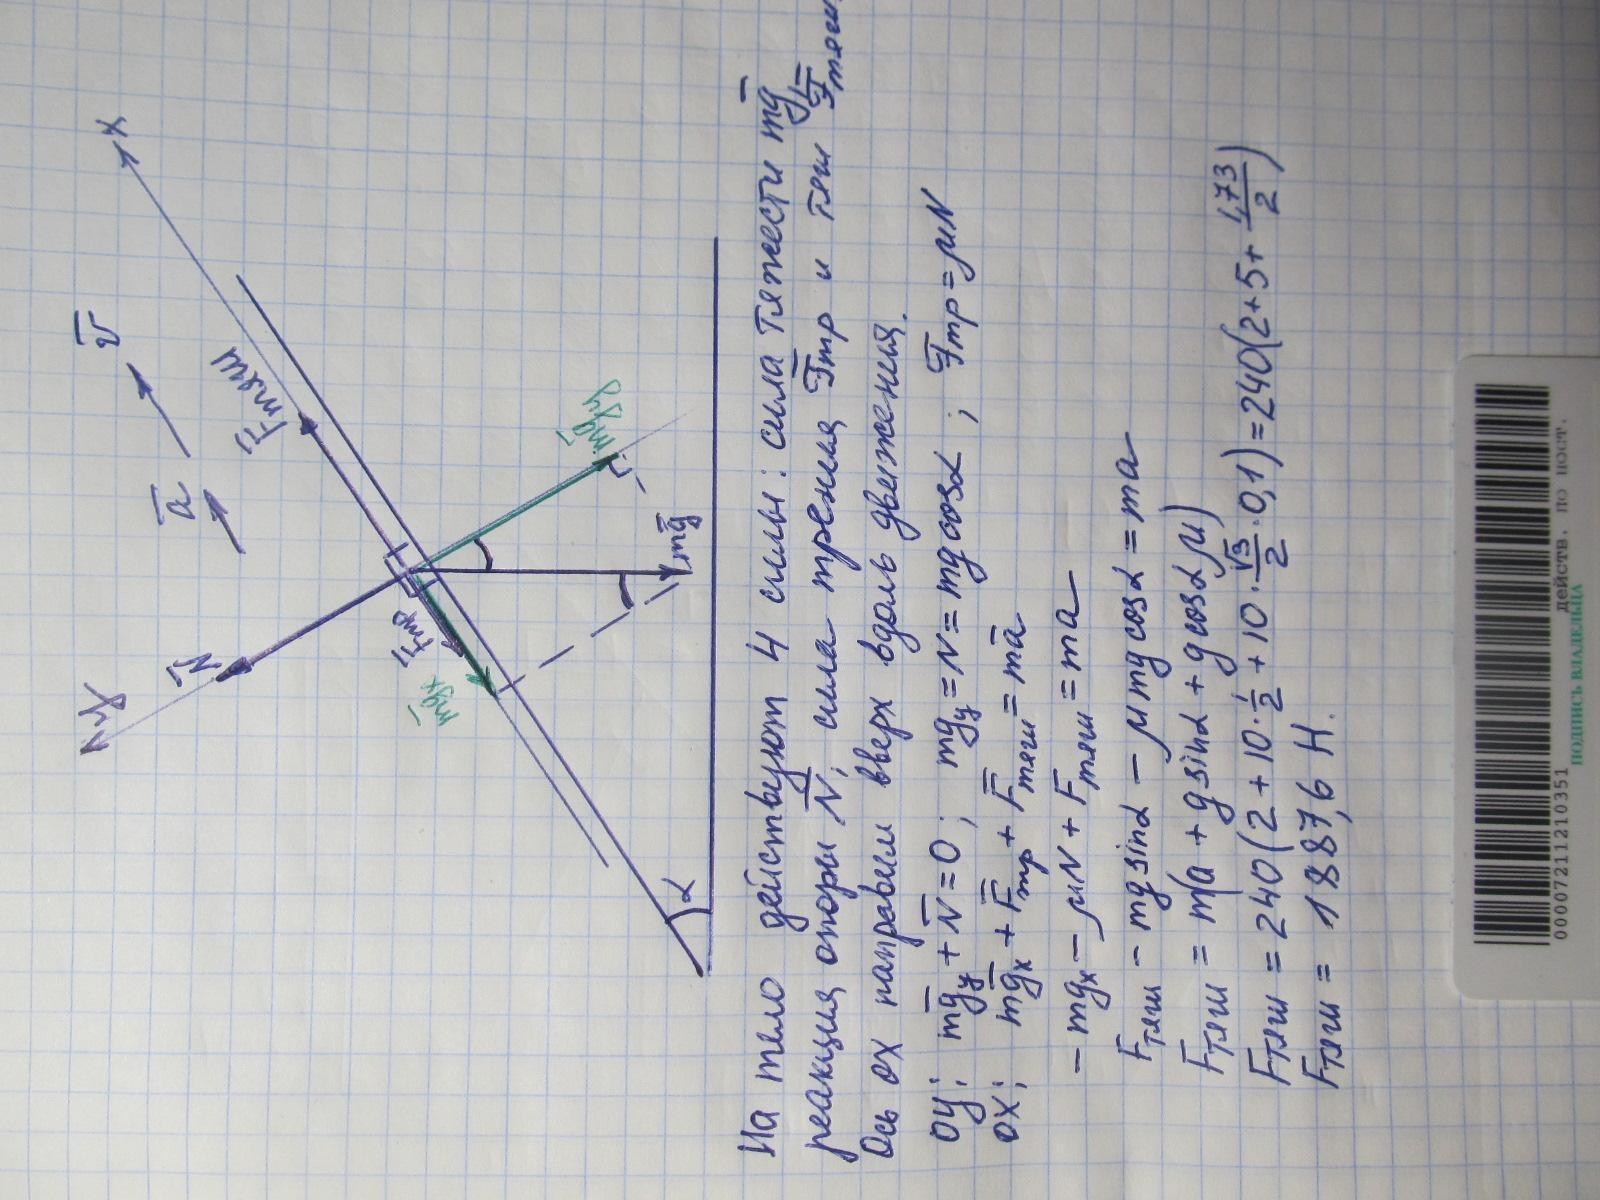 x
v̅
a̅
F̅тяги
y
N̅
F̅тр
m̅gx
m̅gy
m̅g
α
На тело действуют 4 силы: сила тяжести m̅g,
реакция опоры N̅, сила трения F̅тр и тяги F̅тяги
Ось ox направим вверх вдоль движения.
oy: m̅gy + N̅ = 0; mgy = N = mg cosα; Fтр = μN
ox: m̅gx + F̅тр + F̅тяги = ma̅
- mgx - μN + Fтяги = ma
Fтяги - mg sinα - μmg cosα = ma
Fтяги = m(a + g sinα + g cosα μ)
Fтяги = 240(2 + 10·1/2 + 10·√3/2·0,1) = 240(2+5+1,73/2)
Fтяги = 1887,6 Н.
00007211210351
действ. по пост.
ПОДПИСЬ ВЛАДЕЛЬЦА